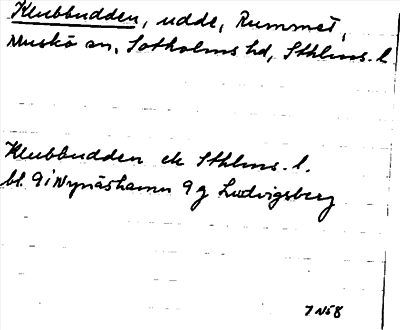 Klubbudden, udde, Rummet,
Muskö sn, Sotholms hd, Sthlms. l
Klubbudden ek Sthlms. l.
bl. 9 i Nynäshamn 9 g Ludvigsberg
7 N58